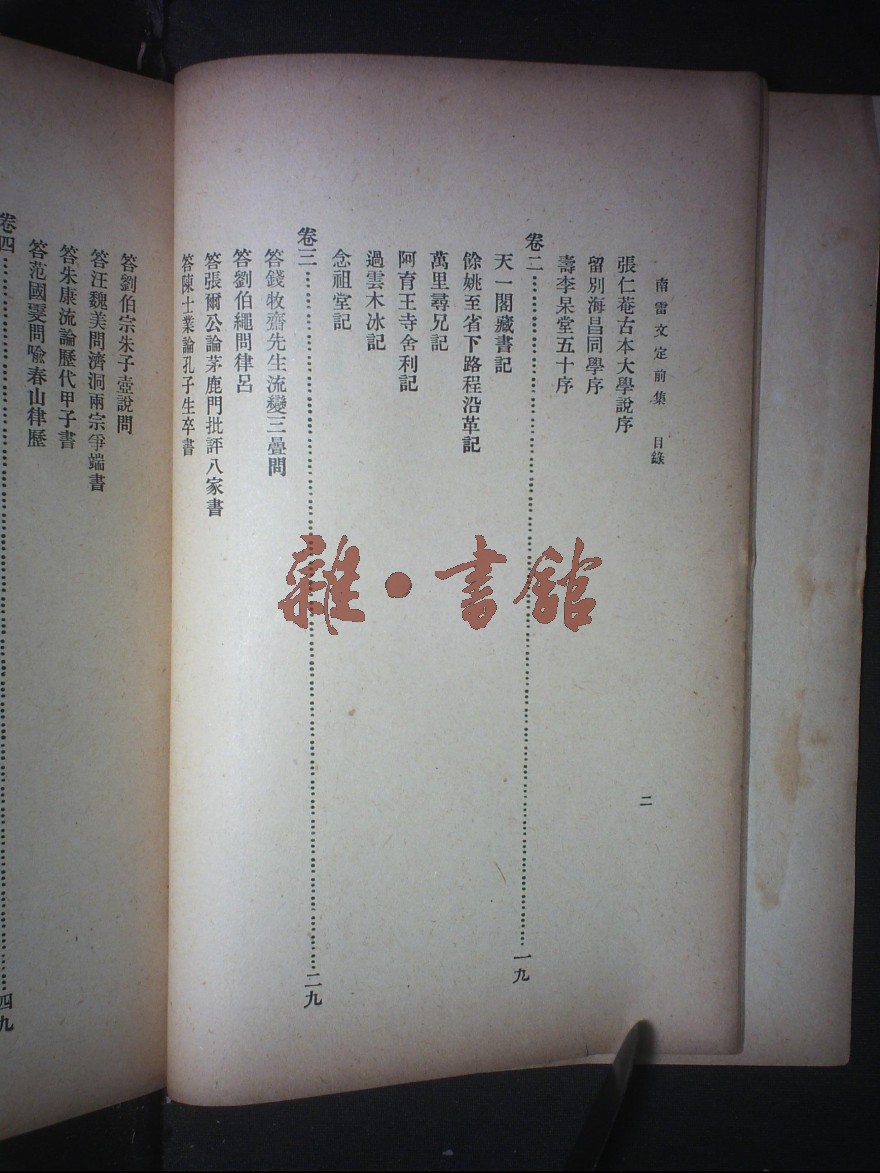 南雷文定前集　目錄
二
張仁菴古本大學說序
留別海昌同學序
壽李杲堂五十序
卷二……一九
天一閣藏書記
餘姚至省下路程沿革記
萬里尋兄記
阿育王寺舍利記
過雲木冰記
念祖堂記
卷三……二九
答錢牧齋先生流變三疊問
答劉伯繩問律呂
答張爾公論茅鹿門批評八家書
答陳士業論孔子生卒書
答劉伯宗朱子壺說問
答汪魏美問濟洞兩宗爭端書
答朱康流論歷代甲子書
答范國雯問喩春山律歷
卷四……四九
雜·書館